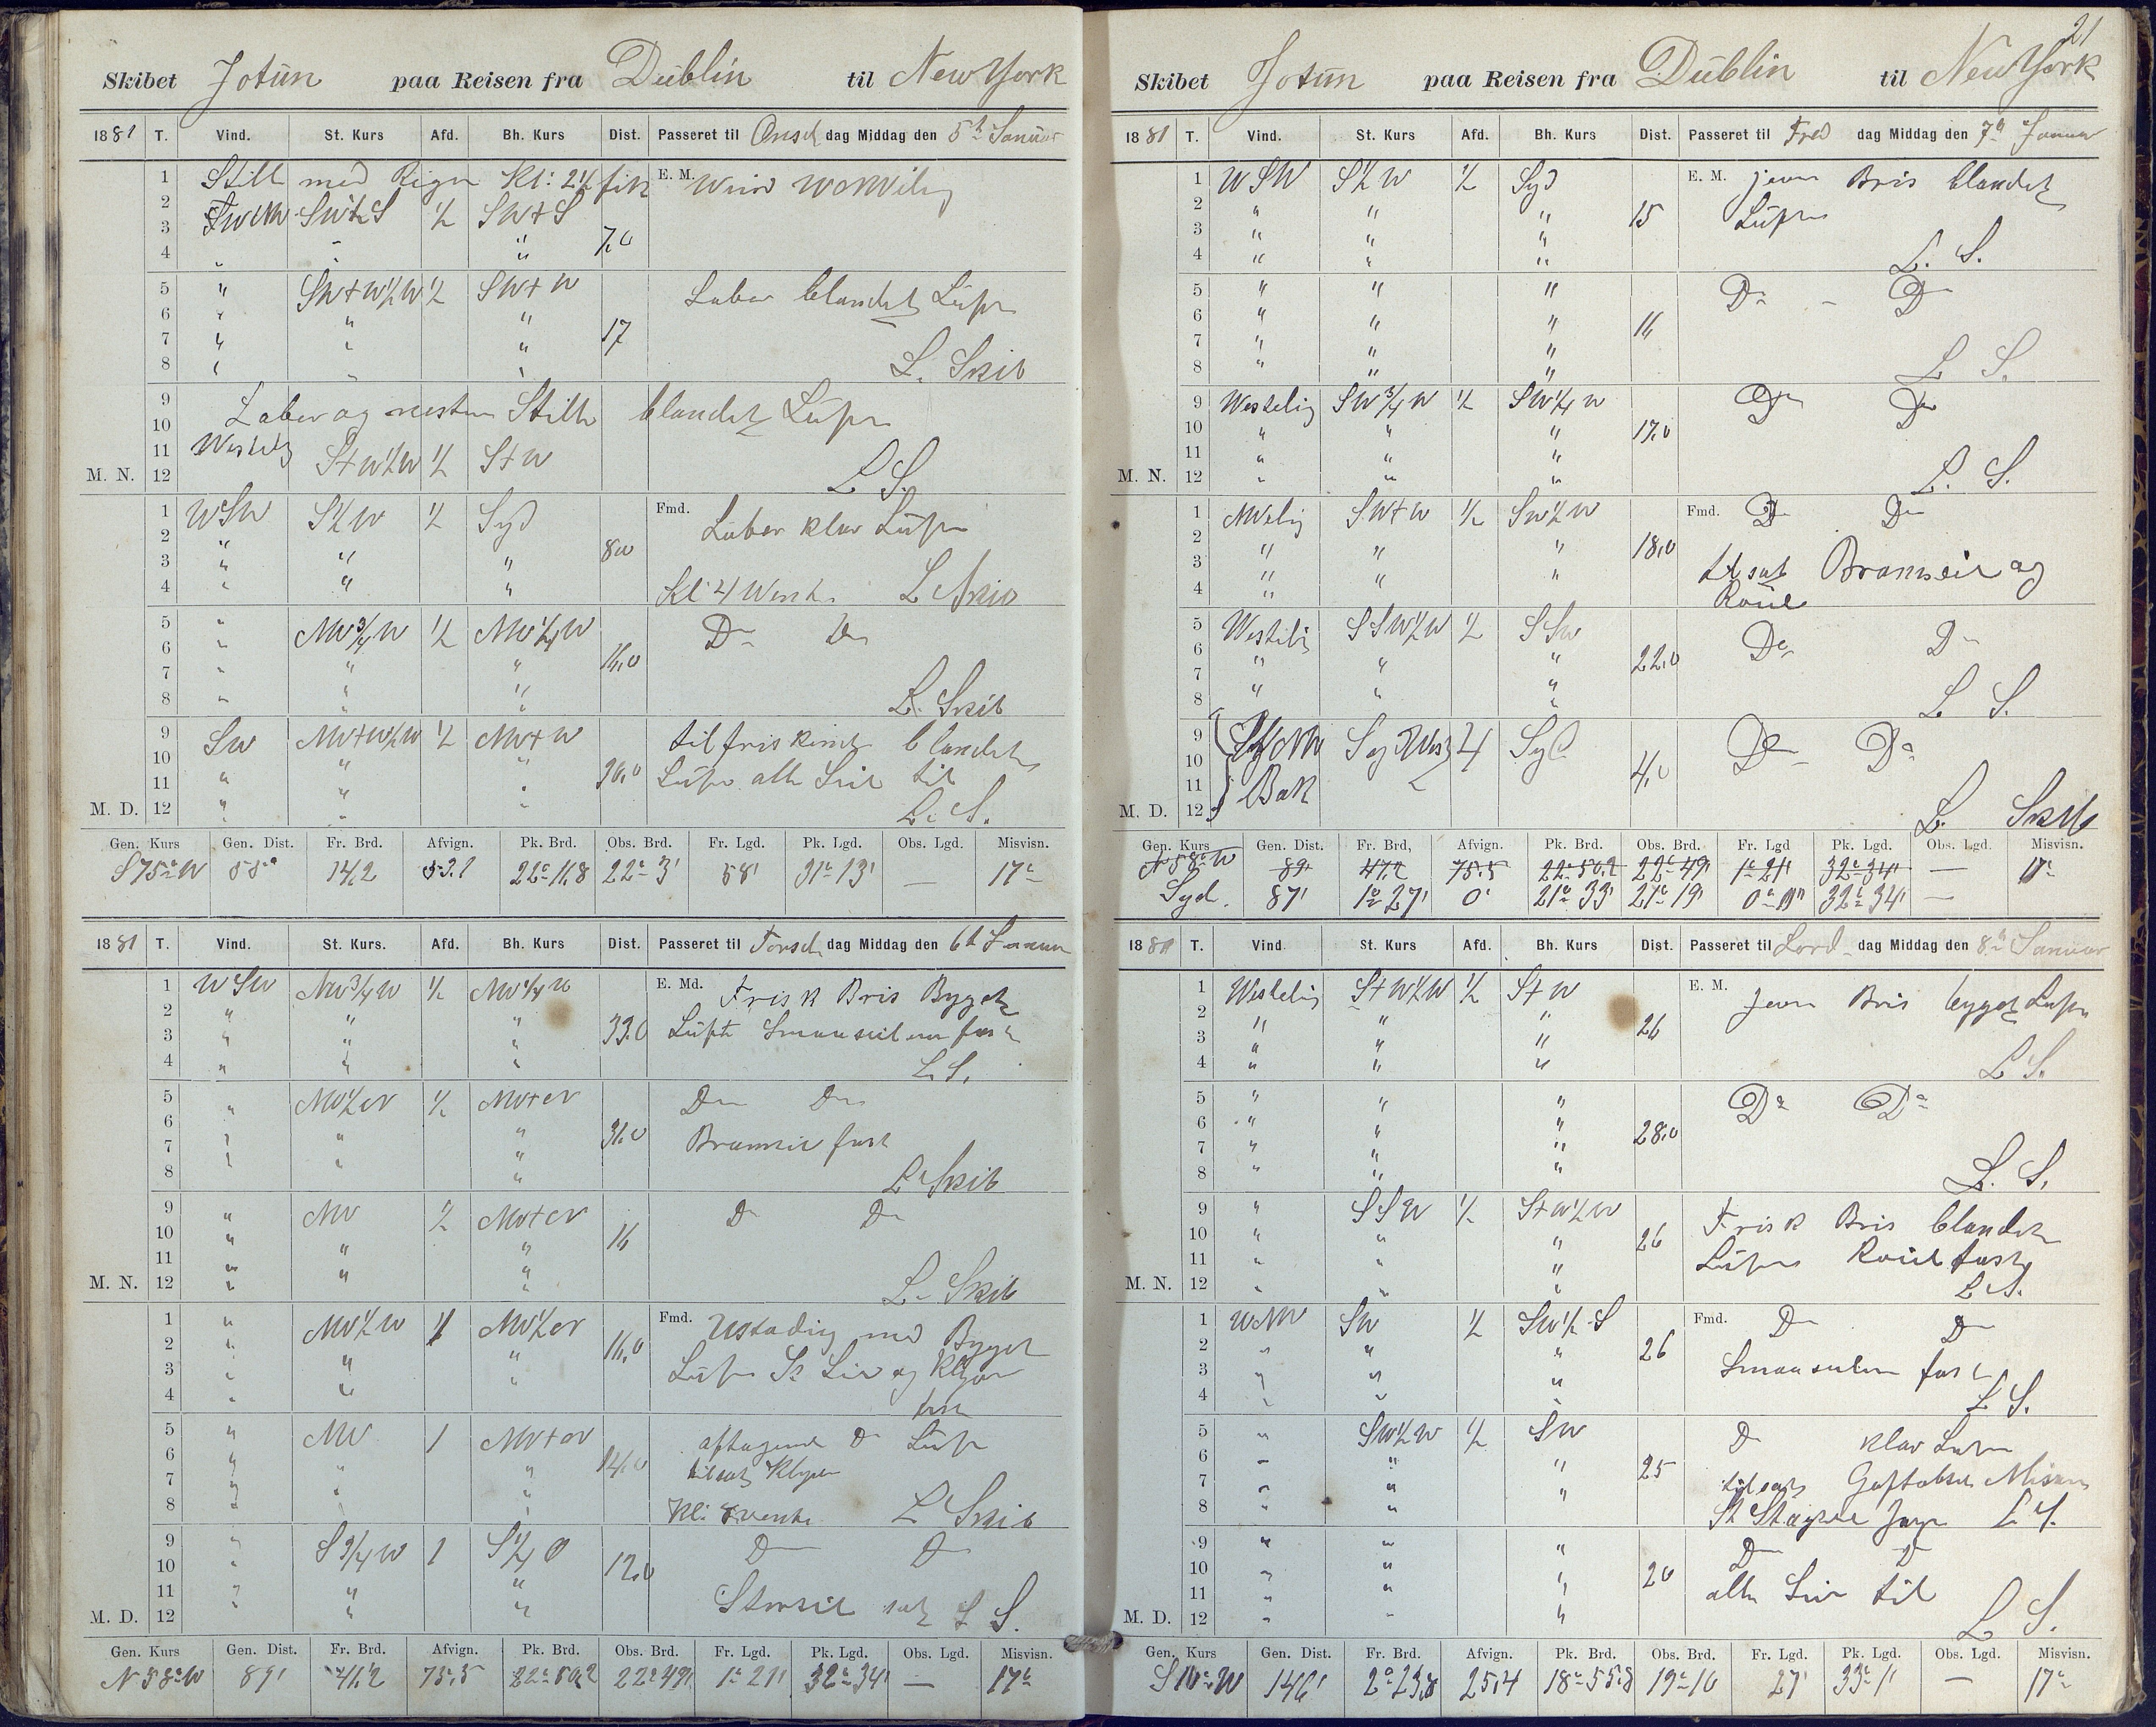 Skibet Jotun paa Reisen fra Dublin til New York
1881 T. Vind. St. Kurs Afd. Bh. Kurs Dist. Passeret til Onsd dag Middag den 5t Januar
1 Still med Regn Kl: 2½ fik E. M.
2
3 SWt½S ½ SWtS
4 " " " 7.0
5 " SWtW½W ½ SWtW Laber blandet Luft
6 " " "
7 " " " 17
8 " " " L. Skib
9 Laber og nesten Stille blandet Luft
10
11 Westlig StW½W ½ StW
M. N. 12 L S.
1 WSW S½W ½ Syd Fmd. Laber klar Luft
2 " " "
3 " " " 8.0
4 " " " Kl: 4 L Skib
5 " NW¾W ½ NW¼W Do Do
6 "
7 " " " 16.0
8 " " " L. Skib
9 SW NWtW½W ½ NWtW tilfriskende blandet
10 " "
11 " " " 30.0 Luft alle Seil til
M. D. 12 " " " L. S.
Gen. Kurs Gen. Dist. Fr. Brd. Afvign. Pk. Brd. Obs. Brd. Fr. Lgd. Pk. Lgd. Obs. Lgd. Misvisn.
S75°W 55° 14,2 53.1 22°11,8 22°3' 58' 31°13' — 17°
1881 T. Vind. St. Kurs. Afd. Bh. Kurs Dist. Passeret til Torsd dag Middag den 6t Januar
1 WSW NW¾W ½ NW¼W E. Md. Frisk Bris Byget
2 " " "
3 " " " 33.0 Luft Smaaseilene fast
4 " " " L. S.
5 " NW½W ½ Do Do
6 " " "
7 " " " 31.0 Bramseil fast
8 " " " L Skib
9 " NW ½ Do Do
10 " " " 16
11 "
M. N. 12 " " " L. Skib
1 " NW½W Fmd. Ustadig med Byget
2 " " " 16.0
3 " " " Luft St Seil og Klyver
4 " " fast
5 " NW 1 aftagende Do Luft
6 " " " 14.0 tilsat Klyver
7 " " "
8 " " " Kl: 8 vendte L Skib
9 " S¾W 1 S¼O Do Do
10 " " " 12.0
11 " " " Storseil sat L S.
M. D. 12 " " "
Gen. Kurs Gen. Dist. Fr. Brd. Afvign. Pk. Brd. Obs. Brd. Fr. Lgd. Pk. Lgd. Obs. Lgd. Misvisn.
N58°W 89' 47,2 75,5 22°50,2 22°49' 1°21' 32°34' — 17°
21
Skibet Jotun paa Reisen fra Dublin til New York
1881 T. Vind. St. Kurs Afd. Bh. Kurs Dist. Passeret til Fred dag Middag den 7d Januar
1 WSW S½W ½ Syd E. M. jevn Bris blandet
2 " " " 15 Luft
3 " " "
4 " " " L. S.
5 " " " Do - Do
6 " " " 16
7 " " "
8 " " " L S.
9 Westelig SW¾W ½ SW¼W Do Do
10 " " " 17.0
11 " "
M. N. 12 " " " L. S.
1 NWelig SWtW ½ SW½W Fmd. Do Do
2 " " " 18.0
3 " " " tilsat Bramseil og
4 " Roiel
5 Westelig SSW½W ½ SSW Do Do
6 " " " 22.0
7 " " "
8 " L S.
9 Syd 4 Syd Do Do
10
11 Bak 4.0
M. D. 12 L. Skib
Gen. Kurs Gen. Dist. Fr. Brd, Afvign. Pk. Brd. Obs. Brd. Fr. Lgd Pk. Lgd. Obs. Lgd. Misvisn.
N58°W 89' 47.2 75.5 22°50.2 22°49' 1°21' 32°34' — 17°
Syd. 87' 1°27' 0' 21°33' 21°19' 0°0'' 32°34' —
1881 T. Vind St. Kurs Afd. Bh. Kurs Dist. Passeret til Lord dag Middag den 8d Januar
1 Westelig StW½W ½ StW E. M. jevn Bris bygget Luft
2 "
3 " " " 26
4 " " " L S.
5 " " " Do Do
6 " " " 28.0
7 " " "
8 " " " L. S.
9 " SSW ½ StW½W Frisk Bris blandet
10 " " " 26
11 " " " Luft Roiel fast
M. N. 12 " " " L S.
1 WNW SW ½ SW½S Fmd. Do Do
2 " " " 26
3 " " " Smaaseilene fast
4 " " " L S.
5 " SW½W ½ SW Do klar Luft
6 " " " 25
7 " " " tilsat Gaftobseil Misan
8 " " St Stagseil Jager L S.
9 " " " Do Do
10 " " " 20
11 " " " alle Seil til
M. D. 12 " " " L S.
Gen. Kurs Gen. Dist. Fr. Brd. Afvign. Pk. Brd. Obs. Brd. Fr. Lgd. Pk. Lgd. Obs. Lgd. Misvisn.
S10°W 146' 2°23,8 25,4 18°55,8 19°10 27' 33°1' — 17°